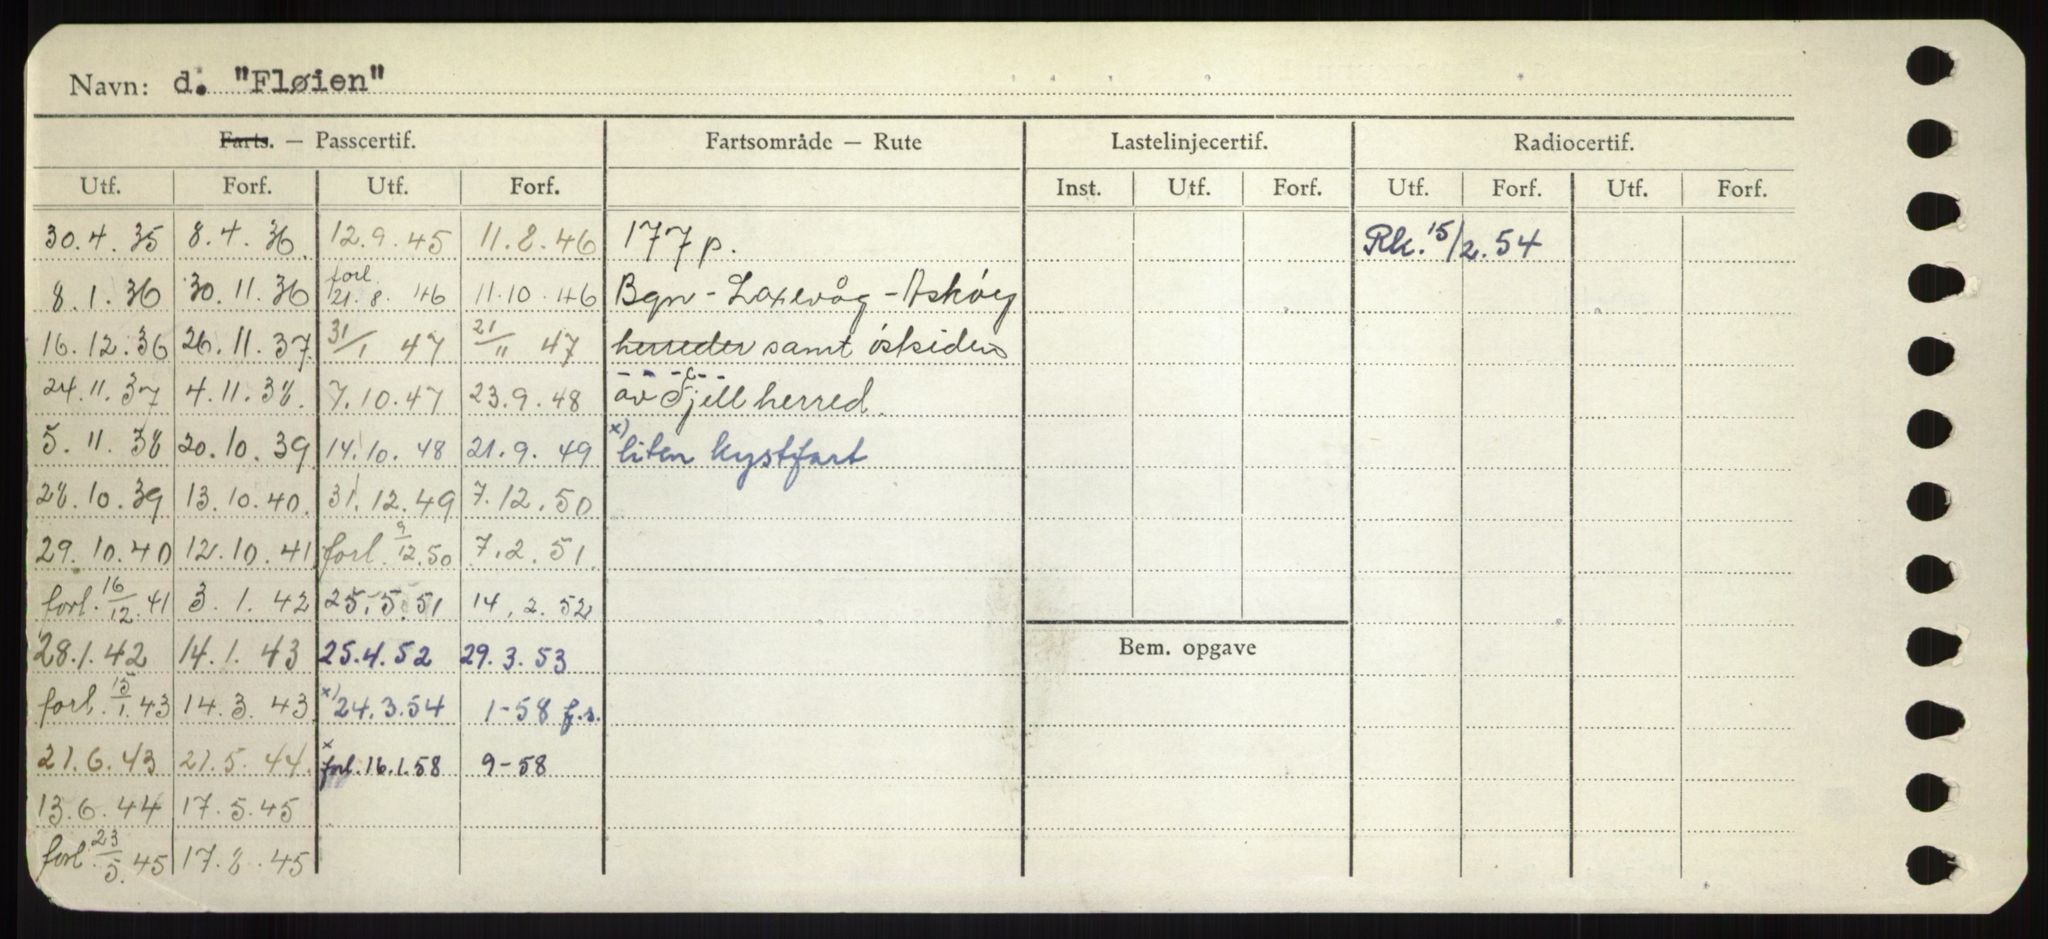 Navn: d. "Fløien"
Farts. — Passcertif. Fartsområde — Rute Lastelinjecertif. Radiocertif.
Utf. Forf. Utf. Forf. Inst. Utf. Forf. Utf. Forf. Utf. Forf.
30.4.35 8.4.36. 12.9.45 11.8.46 177 p. Rk. 15/2.54
8.1.36 30.11.36 forl. 21.8.46 11.10.46 Bgn - Laxevåg - Askøy
16.12.36 26.11.37 31/1 47 21/11 47 herreder samt østsiden
24.11.37 4.11.38. 7.10.47 23.9.48 av Fjell herred.
5.11.38 20.10.39 14.10.48 21.9.49 x) liten kystfart
28.10.39 13.10.40. 31.12.49 7.12.50
29.10.40 12.10.41 forl. 9/12.50 7.2.51.
forl. 16/12.41 3.1.42 25.5.51 14.2.52
28.1.42 14.1.43 25.4.52 29.3.53
Bem. opgave
forl. 15/1.43 14.3.43 x) 24.3.54 1-58 f.s.
21.6.43 21.5.44. x forl. 16.1.58 9-58
13.6.44 17.5.45
forl. 23/5.45 17.8.45